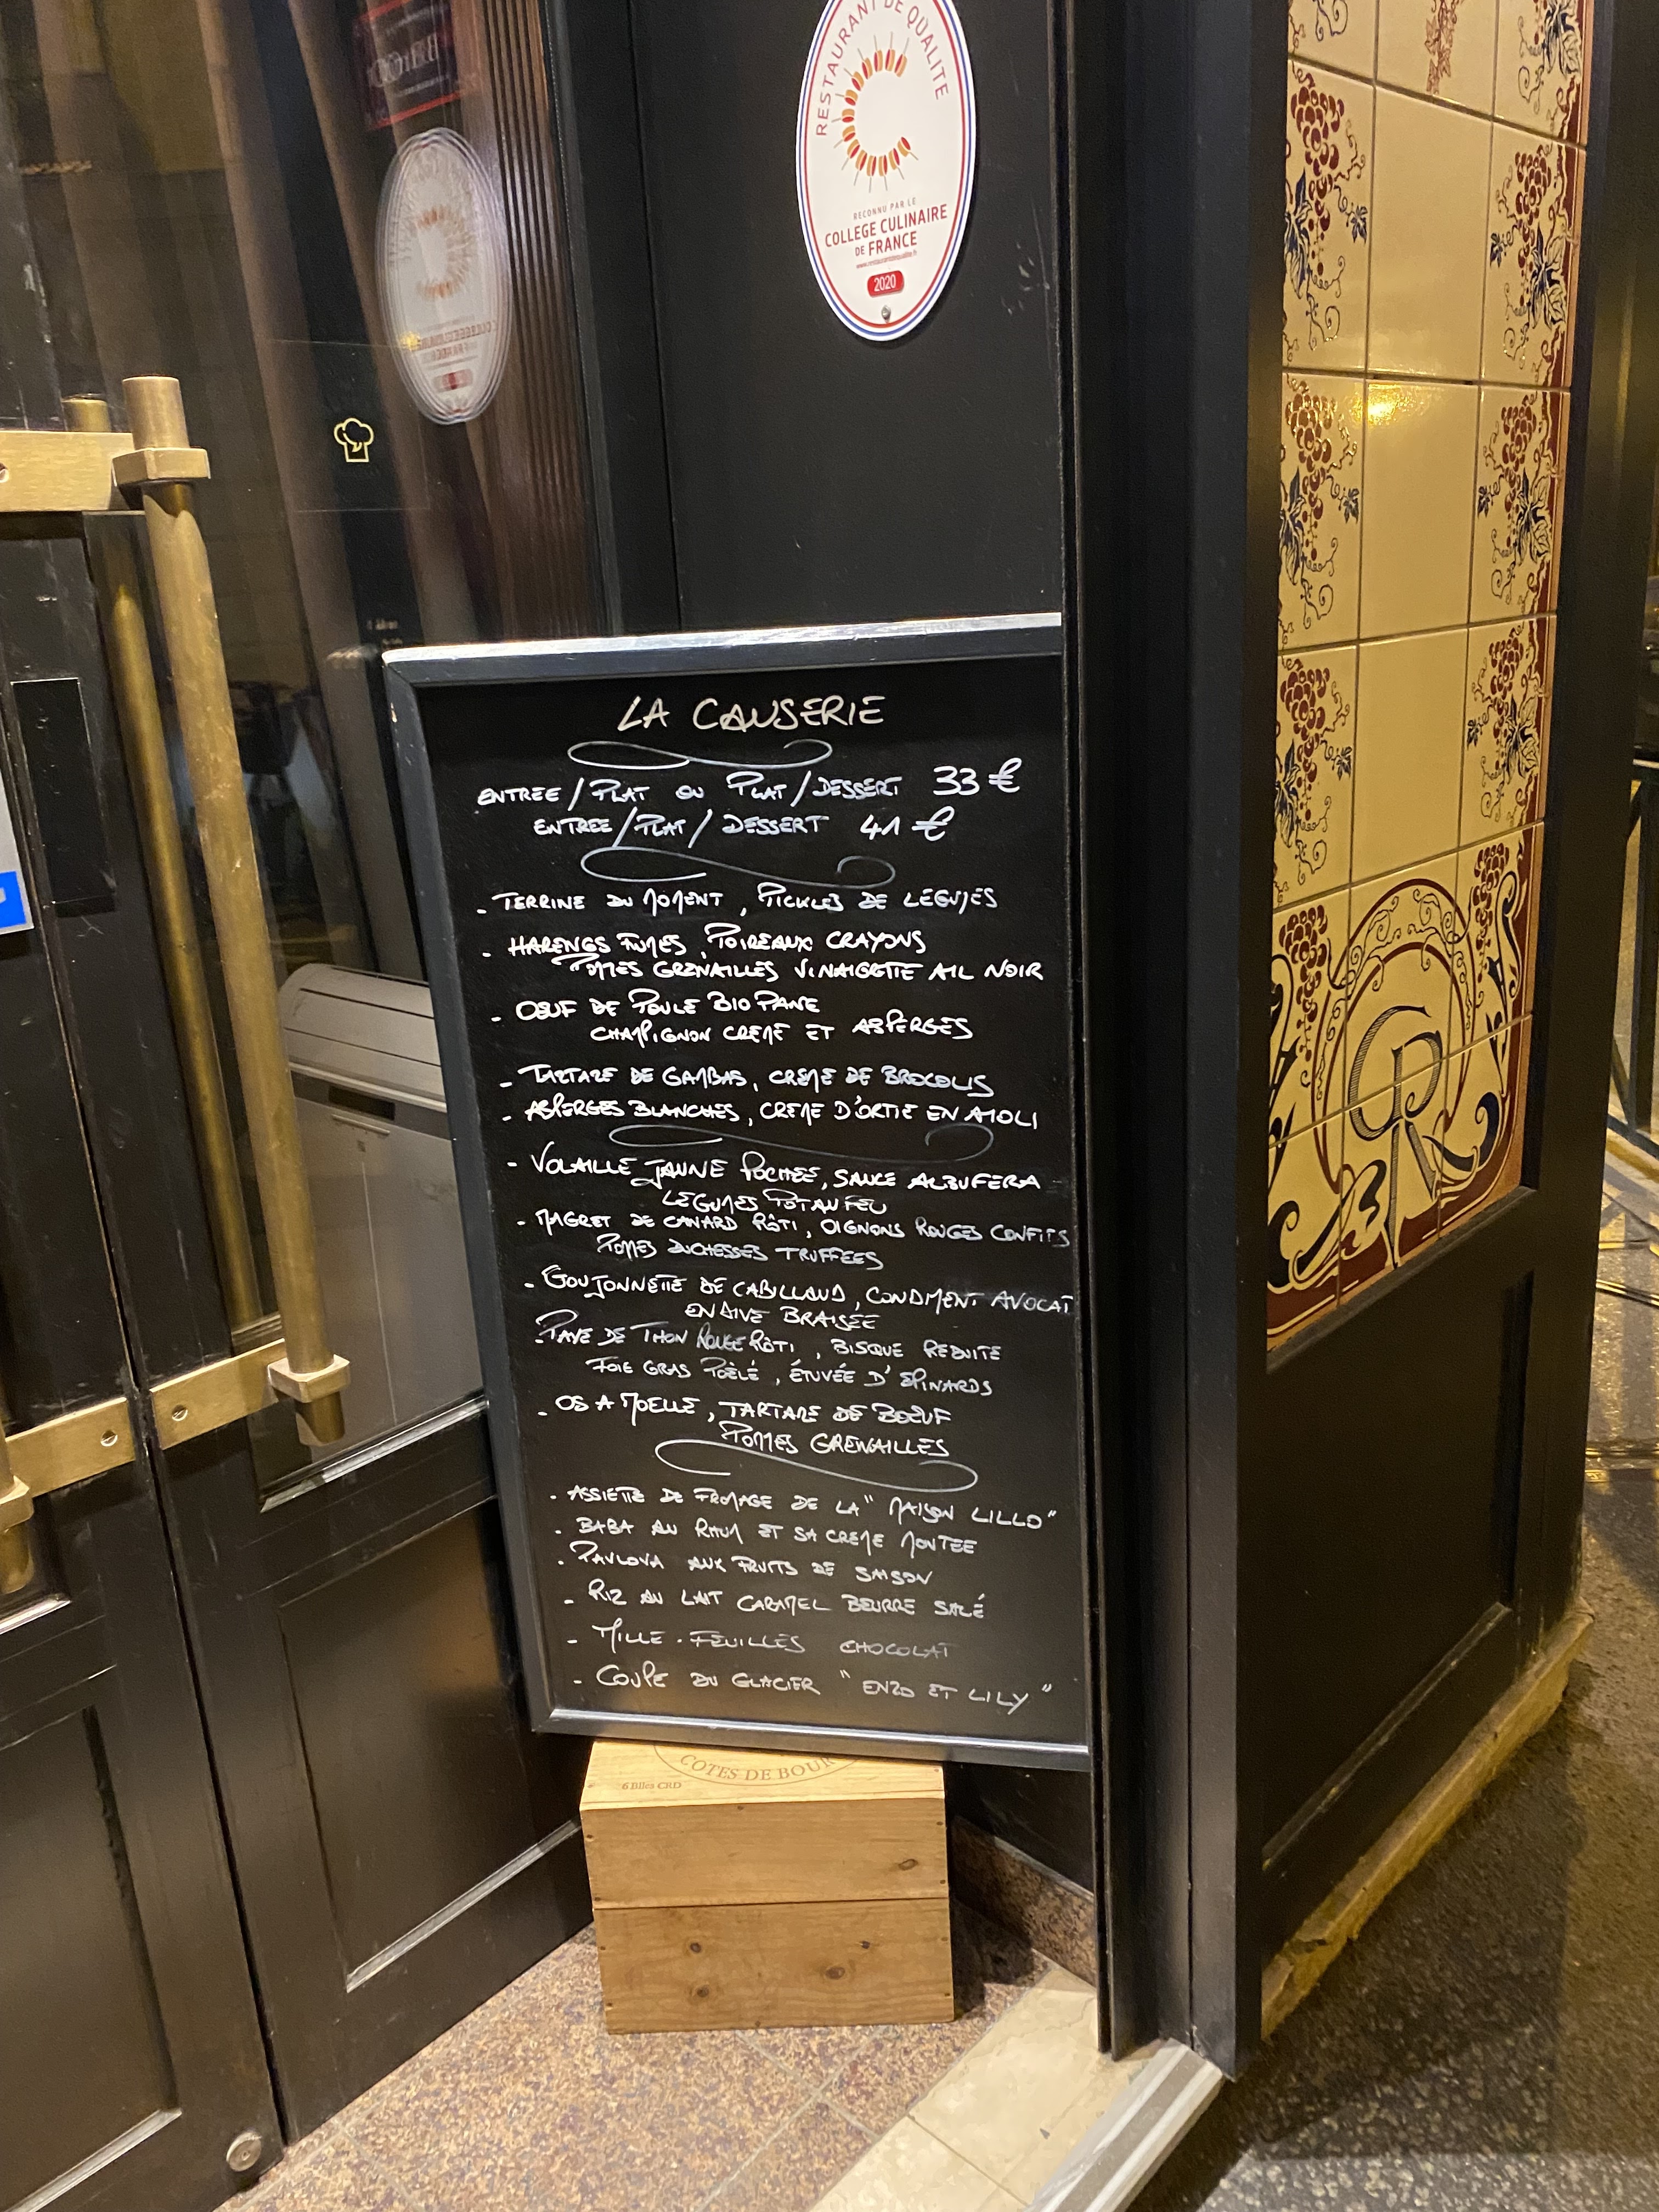 RESTAURANT DE QUALITE
RECONNU PAR LE
COLLEGE CULINAIRE
DE FRANCE
2020
LA CAUSERIE
ENTREE / PLAT OU PLAT / DESSERT 33 €
ENTREE / PLAT / DESSERT 41 €
- TERRINE DU MOMENT, PICKLES DE LEGUMES
- HARENGS FUMES, POIREAUX CRAYONS
POMMES GRENAILLES VINAIGRETTE AIL NOIR
- OEUF DE POULE BIO PANE
CHAMPIGNON CREME ET ASPERGES
- TARTARE DE GAMBAS, CREME DE BROCOLIS
- ASPERGES BLANCHES, CREME D'ORTIE EN AIOLI
- VOLAILLE JAUNE POCHEE, SAUCE ALBUFERA
LEGUMES POT AU FEU
- MAGRET DE CANARD RÔTI, OIGNONS ROUGES CONFITS
POMMES DUCHESSES TRUFFEES
- GOUJONNETTE DE CABILLAUD, CONDIMENT AVOCAT
ENDIVE BRAISÉE
- PAVE DE THON ROUGE RÔTI, BISQUE REDUITE
FOIE GRAS POÊLÉ, ÉTUVÉE D'EPINARDS
- OS A MOELLE, TARTARE DE BOEUF
POMMES GRENAILLES
- ASSIETTE DE FROMAGE DE LA "MAISON LILLO"
- BABA AU RHUM ET SA CREME MONTEE
- PAVLOVA AUX FRUITS DE SAISON
- RIZ AU LAIT CARAMEL BEURRE SALÉ
- MILLE-FEUILLES CHOCOLAT
- COUPE DU GLACIER "ENZO ET LILY"
COTES DE BOUR
6 Blles CRD